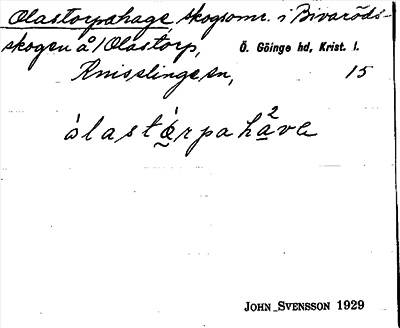 Olastorpahage skogsomr. i Bivaröds-
skogen å 1 Olastorp, Ö. Göinge hd, Krist. l.
Knisslinge sn, 15
òlastórpaha²va
JOHN SVENSSON 1929